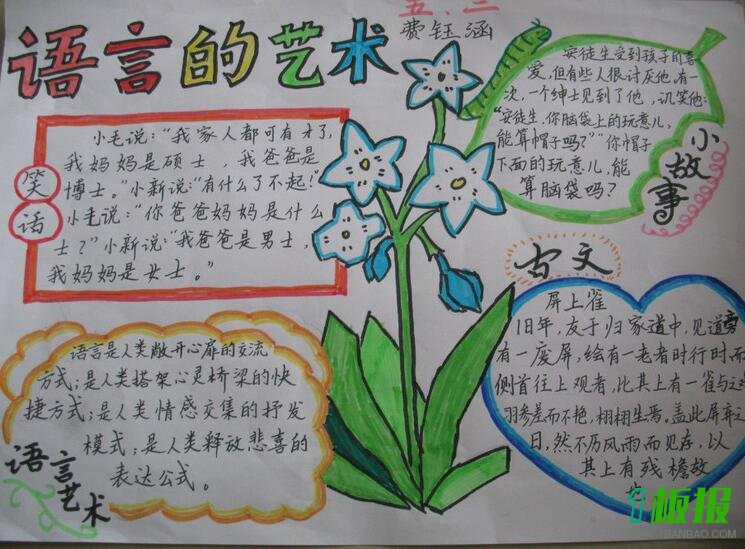 语言的艺术
五.三
费钰涵
笑话
小毛说:“我家人都可有才了,
我妈妈是硕士,我爸爸是
博士。”小新说:“有什么了不起!”
小毛说:“你爸爸妈妈是什么
士?”小新说:“我爸爸是男士,
我妈妈是女士。”
安徒生受到孩子的喜
爱,但有些人很讨厌他,有一
次,一个绅士见到了他,讥笑他:
“安徒生,你脑袋上的玩意儿,
能算帽子吗?”“你帽子
下面的玩意儿,能
算脑袋吗?
小故事
语言是人类敞开心扉的交流
方式;是人类搭架心灵桥梁的快
捷方式;是人类情感交集的抒发
模式;是人类释放悲喜的
表达公式。
语言艺术
古文
屏上雀
旧年,友于归家道中,见道旁
有一废屏,绘有一老者时行时而
侧首往上观者,比其上有一雀与之
羽参差而不艳,栩栩生焉。盖此屏弃之
日,然不历风雨而见存,以
其上有残檐故
板报
WWW.1BANBAO.COM